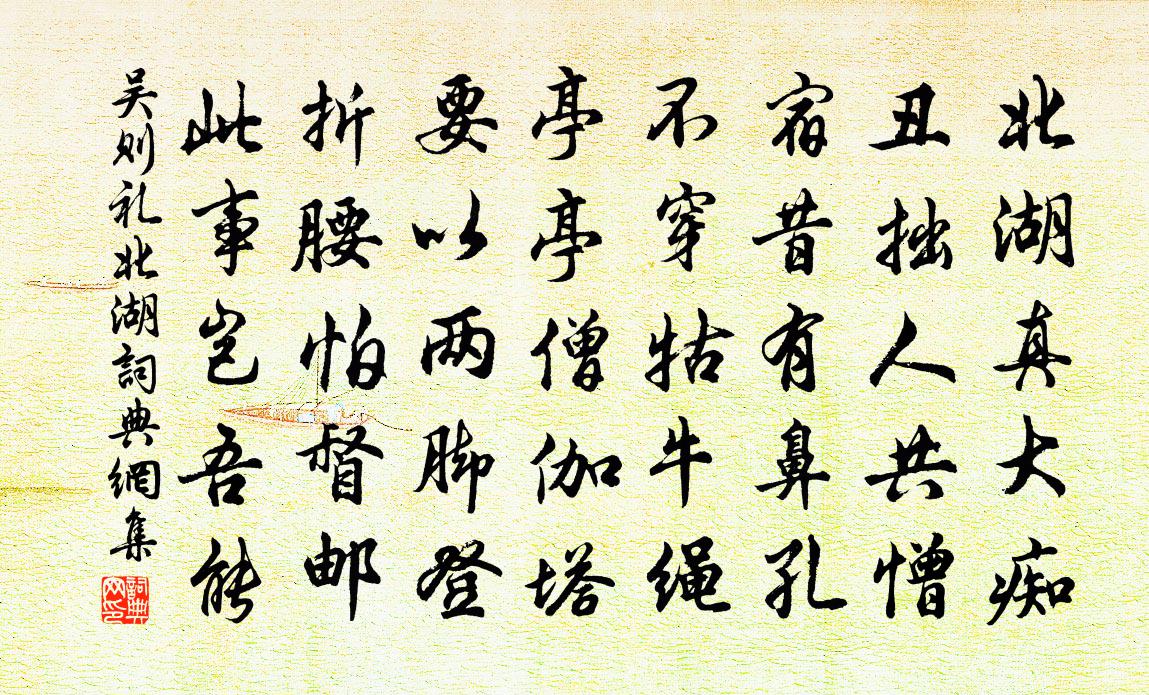 北湖真大痴
丑拙人共憎
宿昔有鼻孔
不穿牯牛绳
亭亭僧伽塔
要以两脚登
折腰怕督邮
此事岂吾能
吴则礼北湖詞典網集
詞典网印